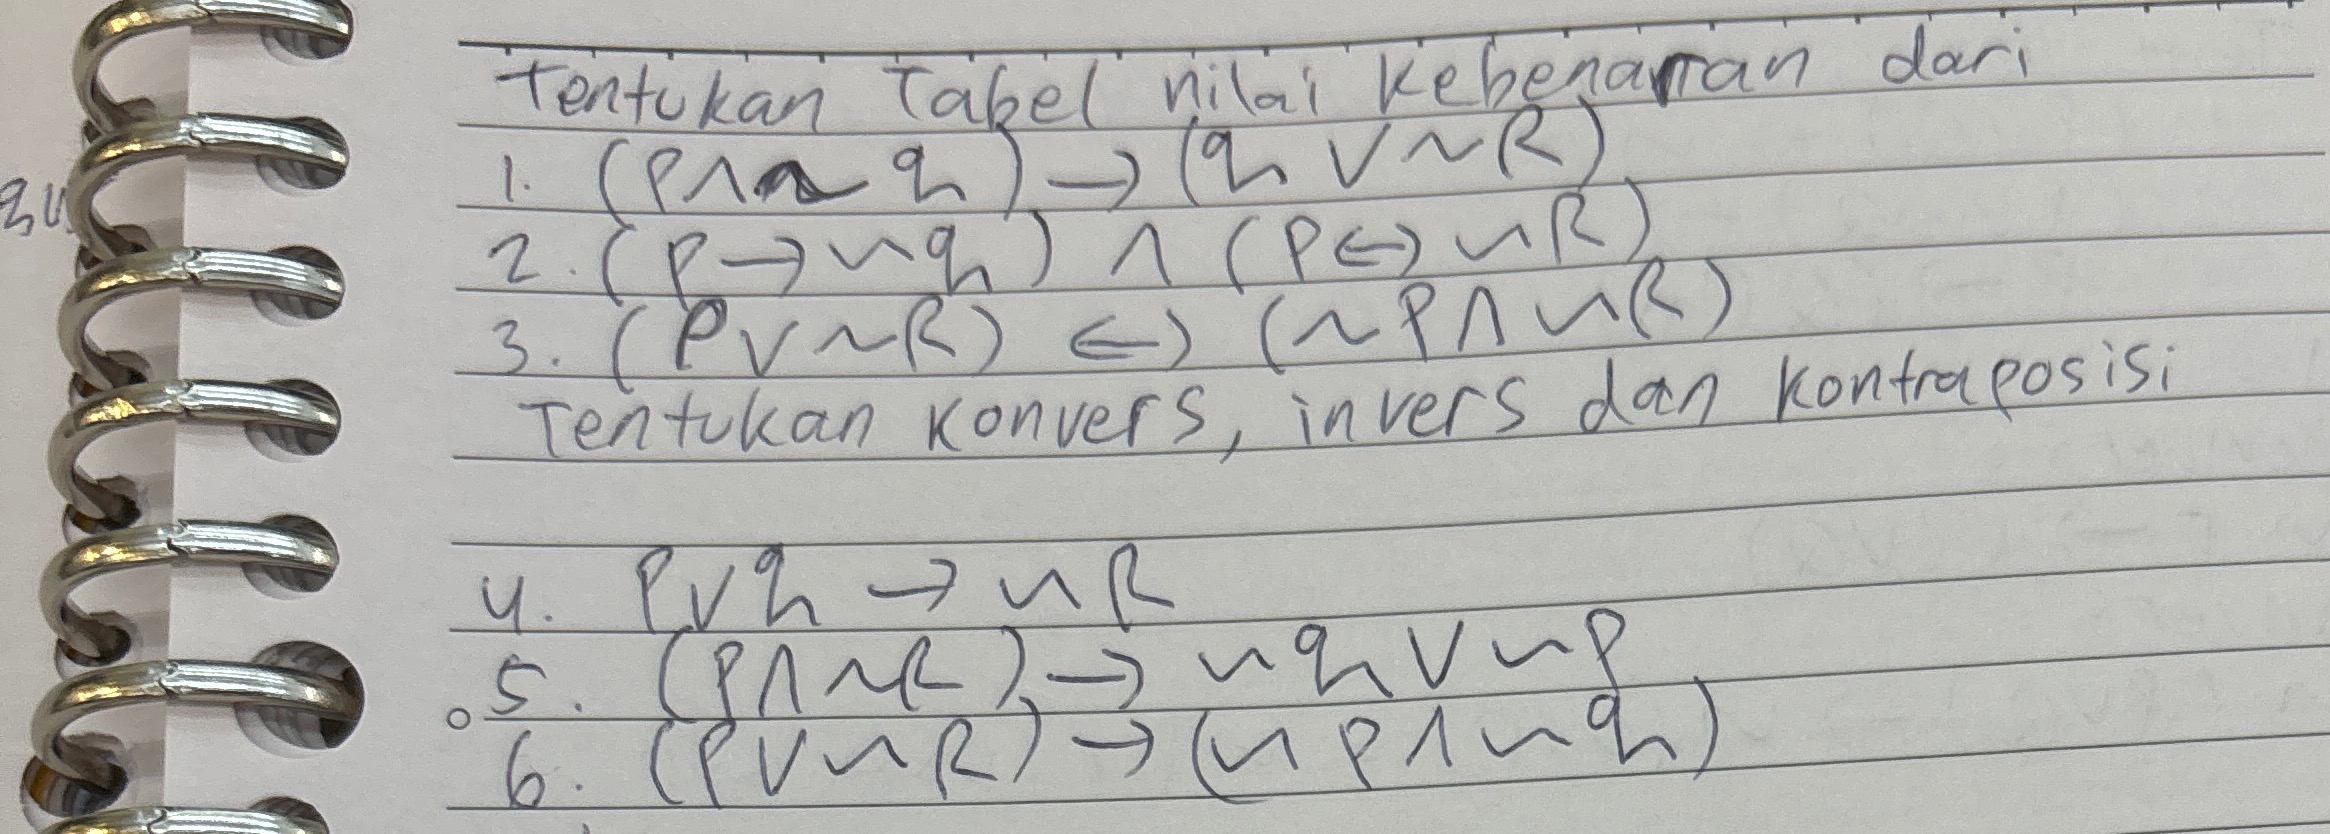 Tentukan Tabel nilai kebenaran dari
1. (P ∧ ~ q) → (q ∨ ~ R)
2. (P → ~ q) ∧ (P ↔ ~ R)
3. (P ∨ ~ R) ↔ (~ P ∧ ~ R)
Tentukan Konvers, invers dan kontraposisi
4. P ∨ q → ~ R
5. (P ∧ ~ R) → ~ q ∨ ~ P
6. (P ∨ ~ R) → (~ P ∧ ~ q)